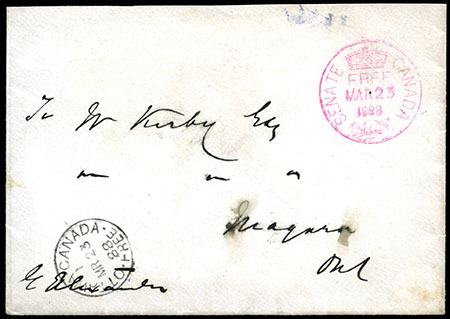 SENATE CANADA
FREE
MAR 23
1888
To W Kirby Esq
Niagara
Ont
CANADA. FREE
MR 23
88
G Alexander